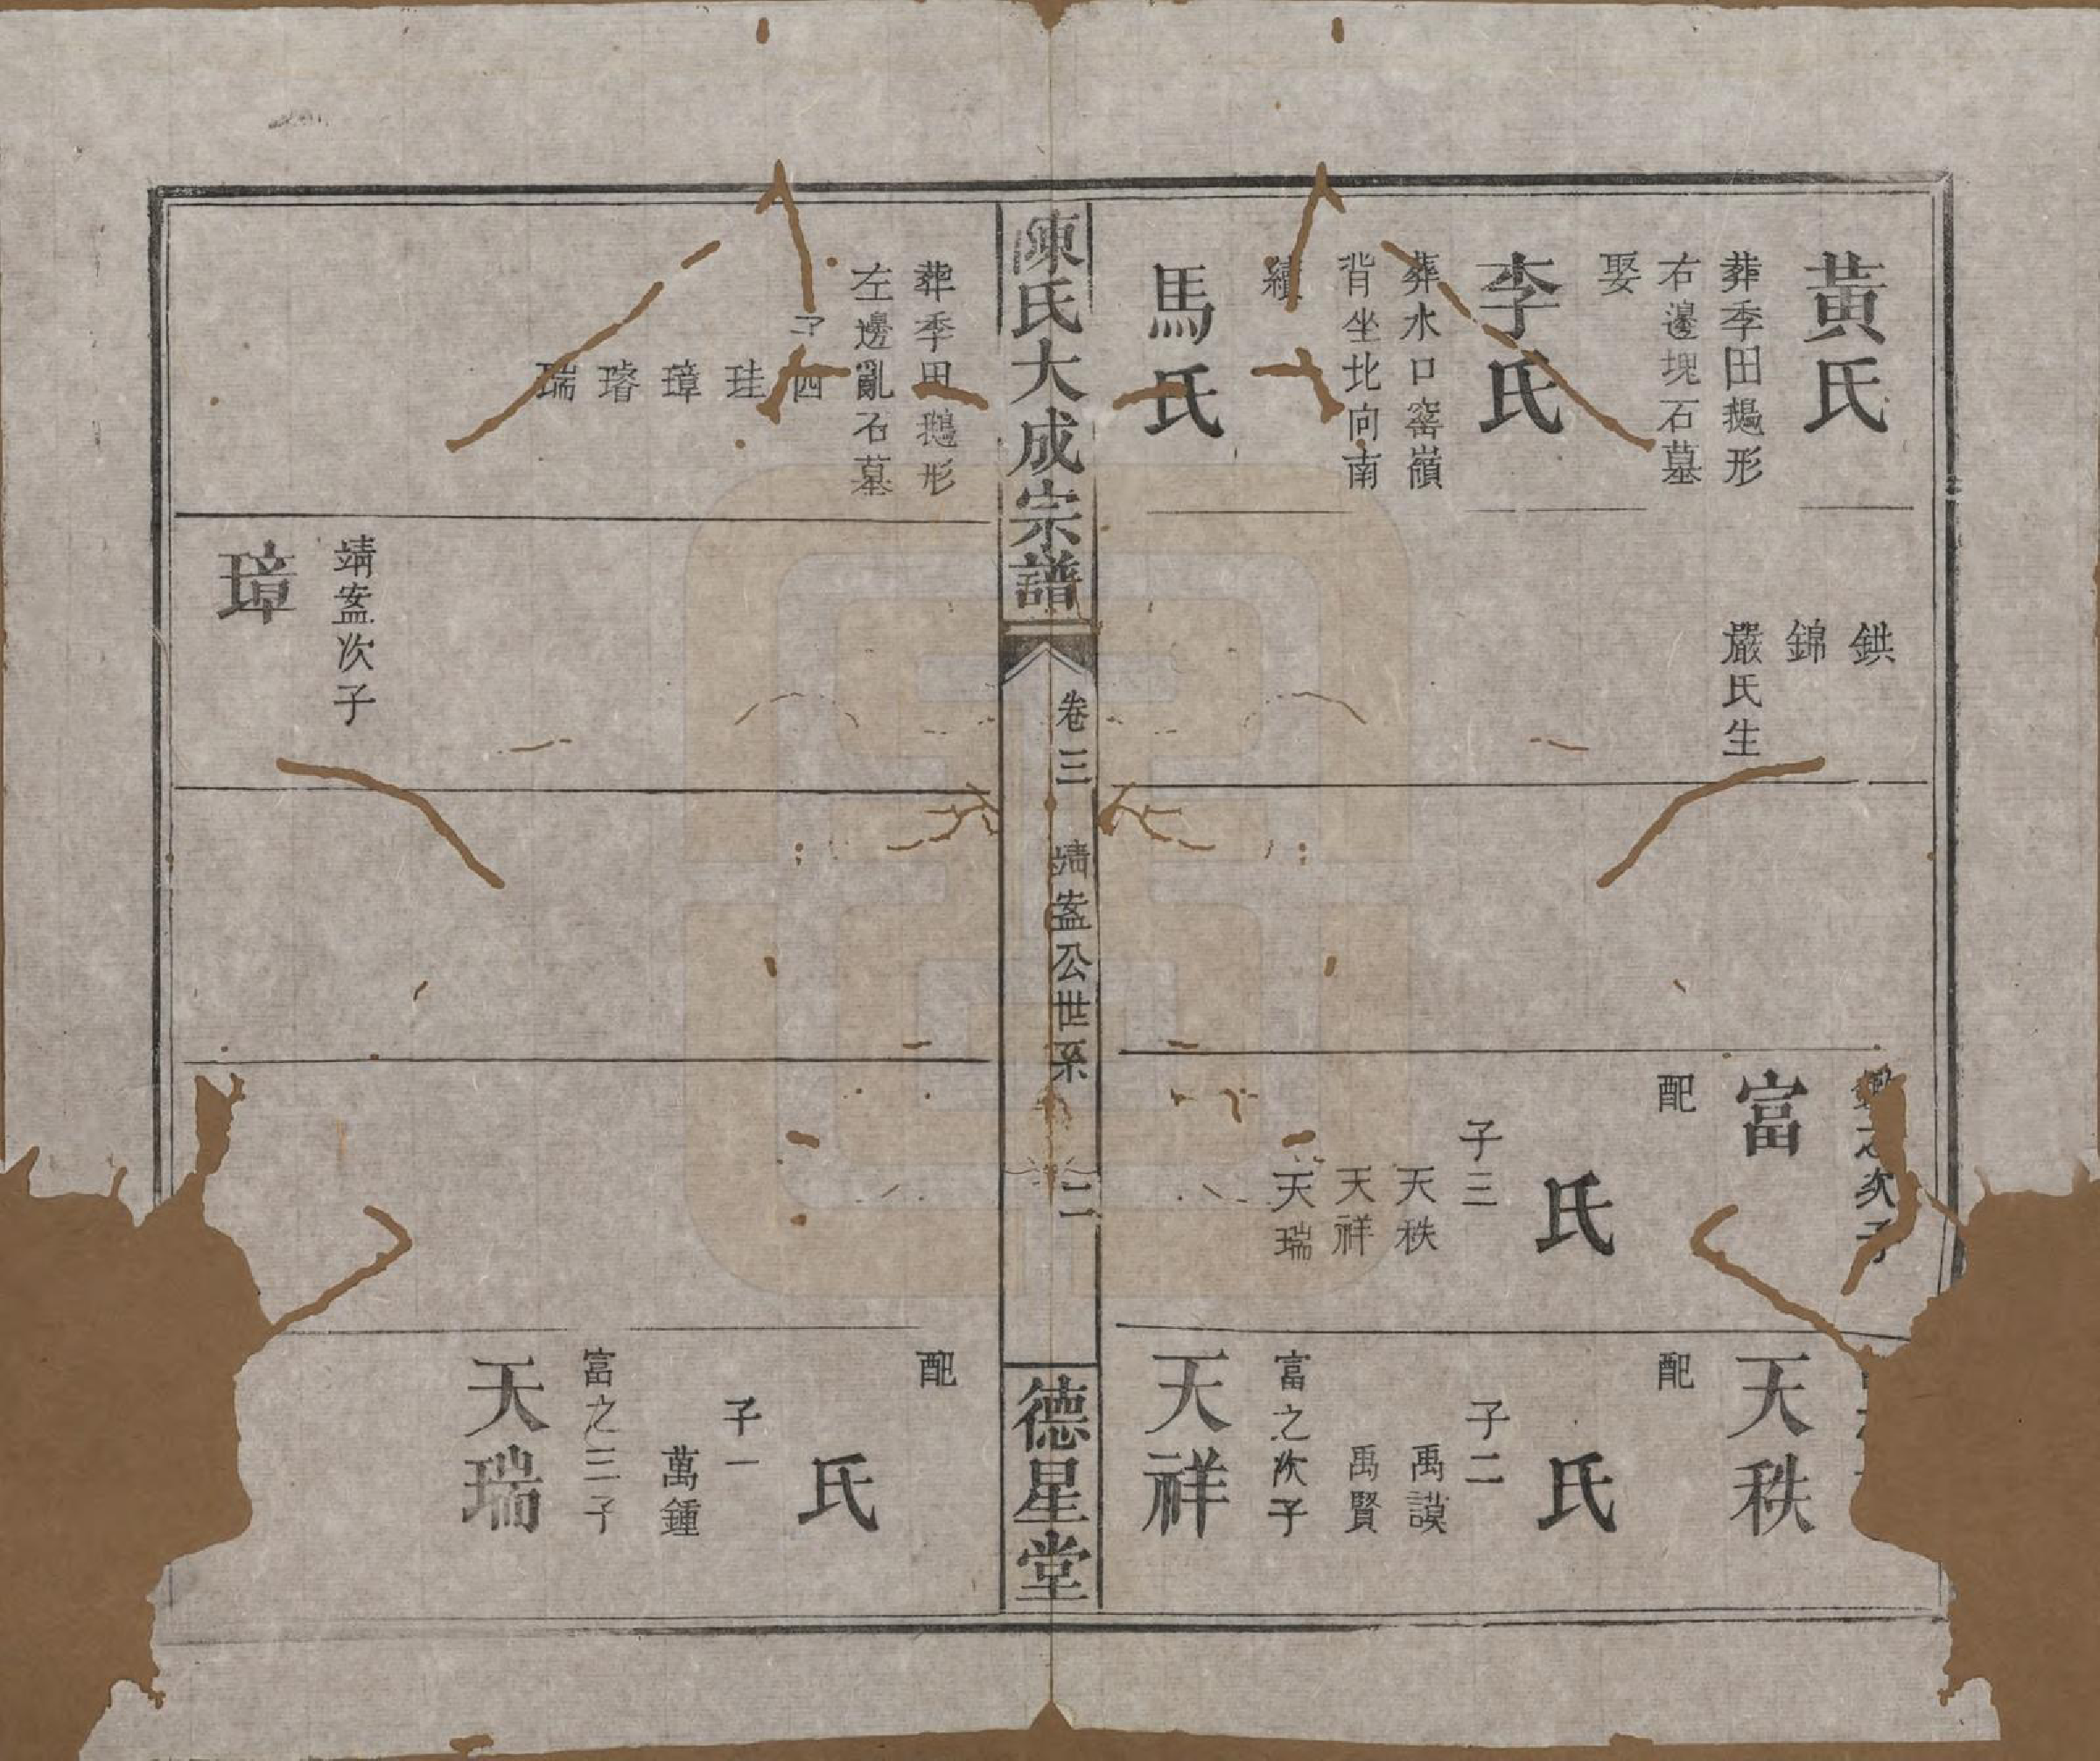 黃氏
葬季田鵝形
右邊塊石墓
娶
李氏
葬水口窰嶺
背坐北向南
續
馬氏
鉷
錦
嚴氏生
之次子
富
配
氏
子三
天秩
天祥
天瑞
天秩
配
氏
子二
禹謨
禹賢
富之次子
天祥
陳氏大成宗譜
卷三
靖盦公世系
二
德星堂
葬季田鵝形
左邊亂石墓
子四
珪
璋
璿
瑞
靖盦次子
璋
配
氏
子一
萬鍾
富之三子
天瑞